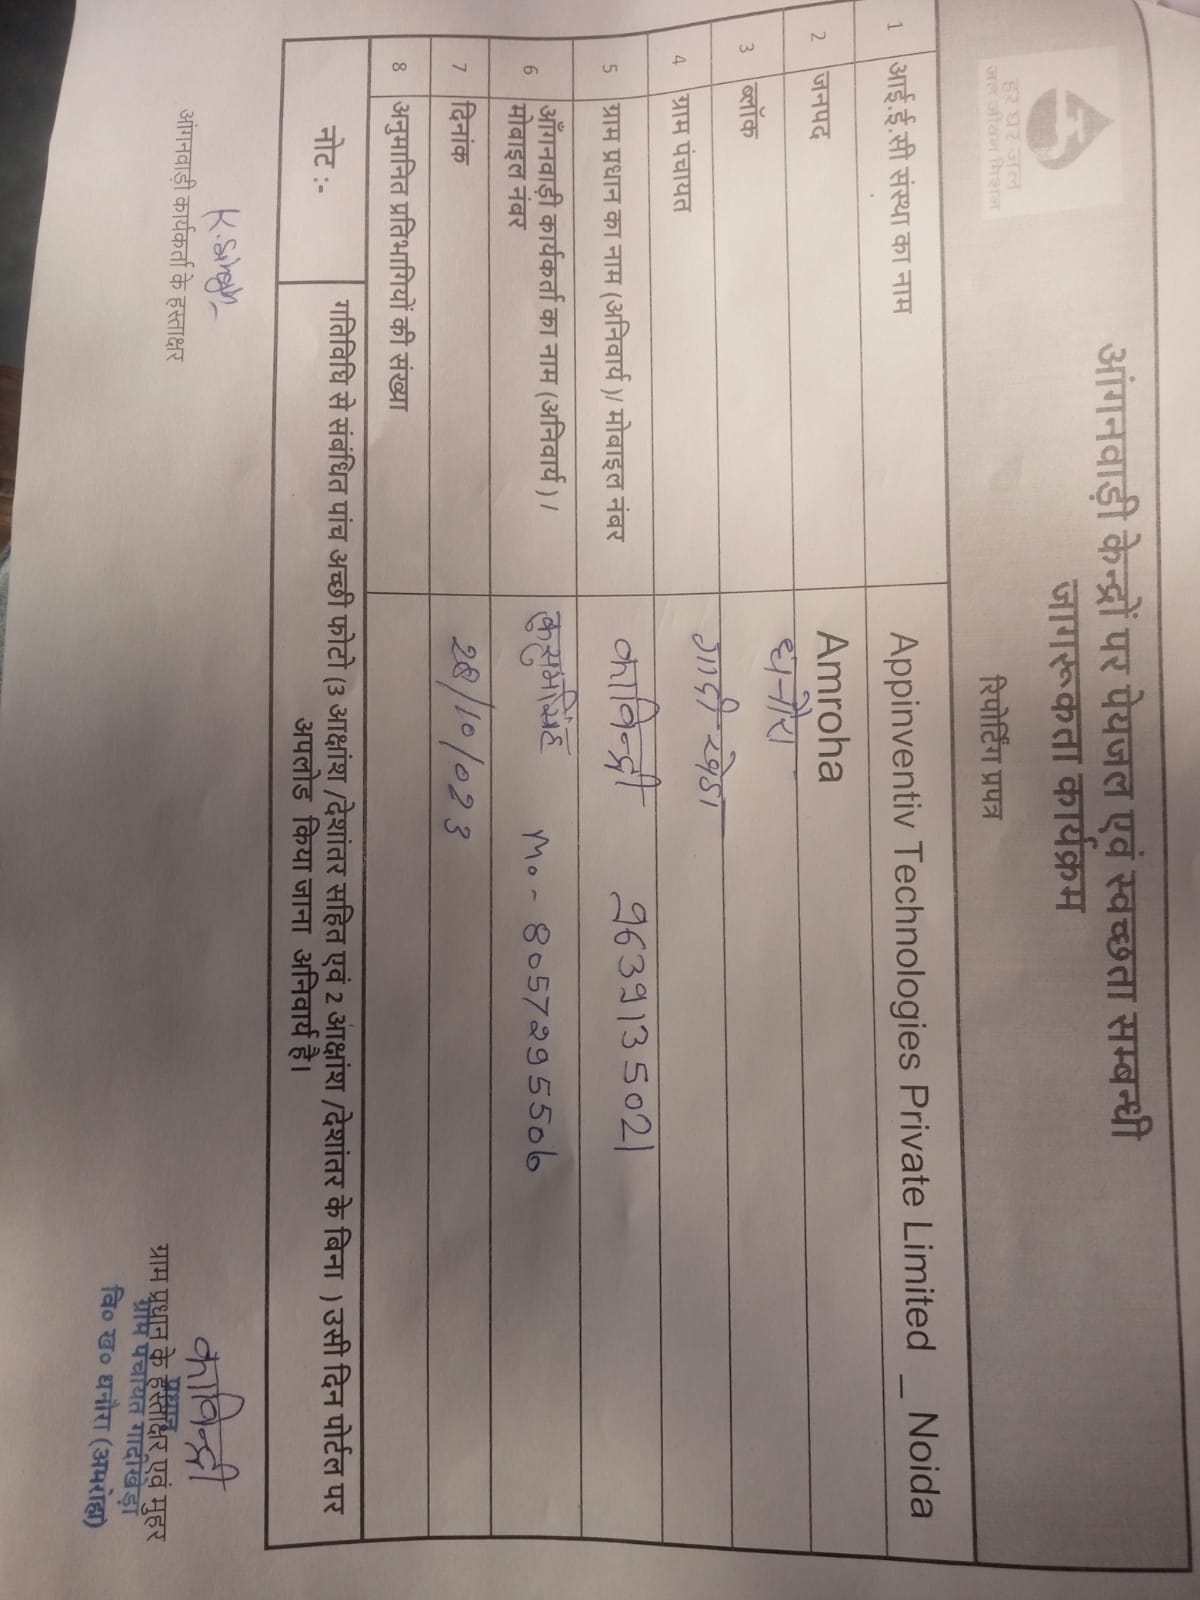 हर घर जल
जल जीवन मिशन
आंगनवाड़ी केन्द्रों पर पेयजल एवं स्वच्छता सम्बन्धी
जागरूकता कार्यक्रम
रिपोर्टिंग प्रपत्र
1 आई.ई.सी संस्था का नाम Appinventiv Technologies Private Limited _ Noida
2 जनपद Amroha
3 ब्लॉक धनौरा
4 ग्राम पंचायत गादीखेडा
5 ग्राम प्रधान का नाम (अनिवार्य )/ मोबाइल नंबर काविन्द्री 9639135021
6 ऑंगनवाड़ी कार्यकर्ता का नाम (अनिवार्य ) /
मोबाइल नंबर कुसुम सिंह mo - 8057295506
7 दिनांक 28/10/023
8 अनुमानित प्रतिभागियों की संख्या
नोट :- गतिविधि से संबंधित पांच अच्छी फोटो (3 आक्षांश /देशांतर सहित एवं 2 आंक्षांश /देशांतर के बिना ) उसी दिन पोर्टल पर
अपलोड किया जाना अनिवार्य है।
K. Singh
आंगनवाड़ी कार्यकर्ता के हस्ताक्षर
काविन्द्री
ग्राम प्रधान के हस्ताक्षर एवं मुहर
प्रधान
ग्राम पंचायत गादीखेड़ा
वि० ख० धनौरा (अमरोहा)